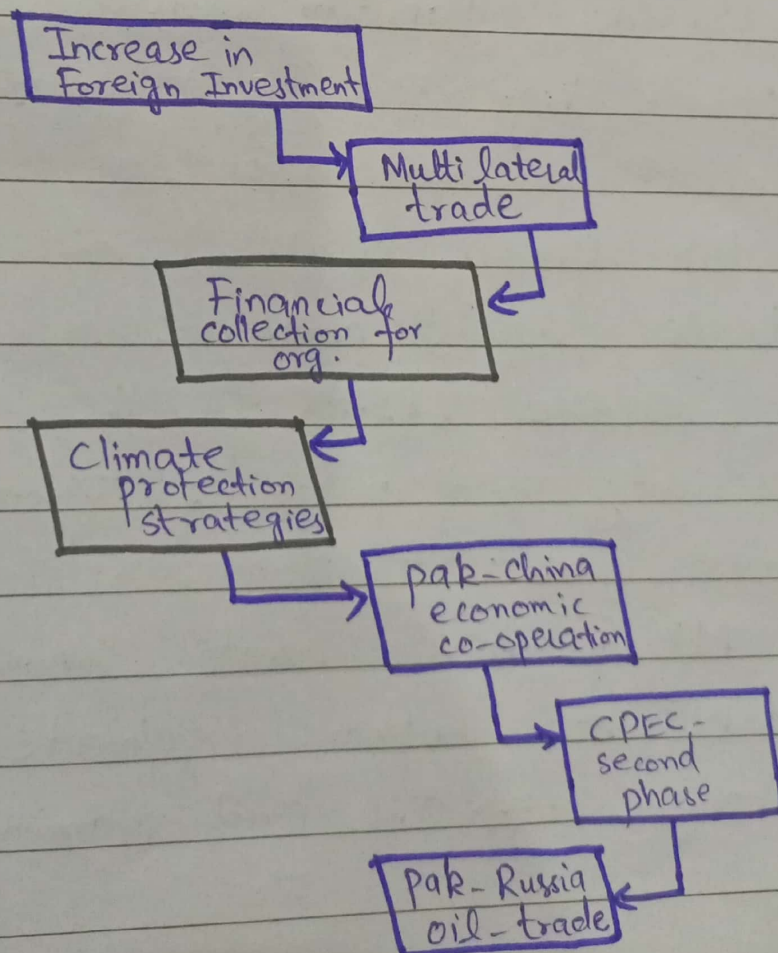 Increase in
Foreign Investment
Multi lateral
trade
Financial
collection for
org.
Climate
protection
strategies
pak-china
economic
co-operation
CPEC-
second
phase
pak-Russia
oil-trade